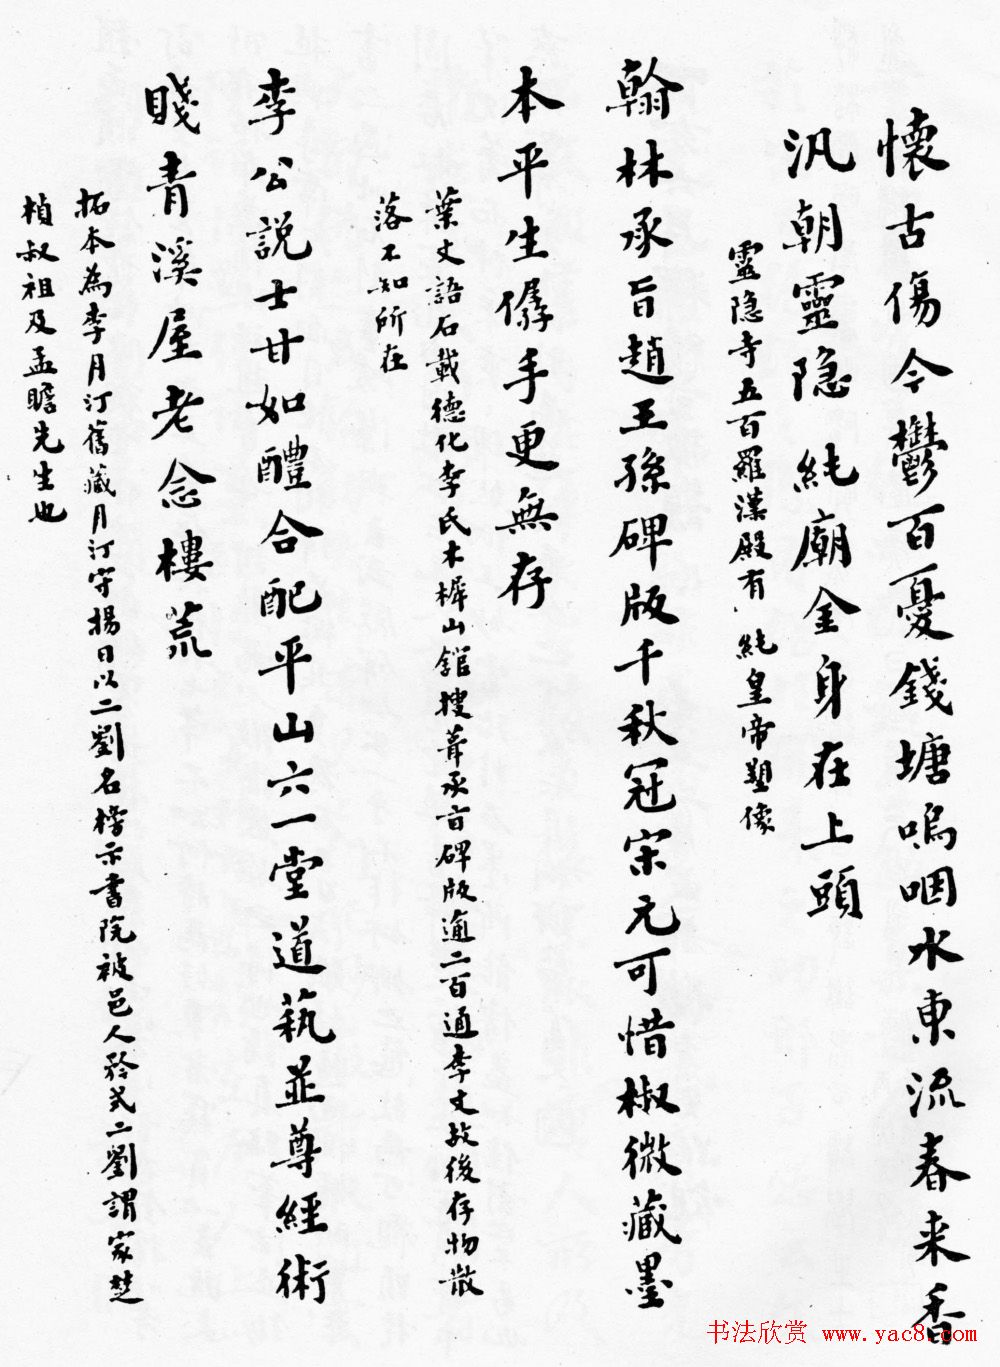 懷古傷今鬱百憂錢塘嗚咽水東流春来香
汎朝靈隐純廟金身在上頭
靈隐寺五百羅漢殿有純皇帝塑像
翰林承旨趙王孫碑版千秋冠宋元可惜椒微藏墨
本平生儔手更無存
葉丈語石載德化李氏木樨山館搜葺承旨碑版逾二百通李丈故後存物散
落不知所在
李公説士甘如醴合配平山六一堂道藝並尊經術
賤青溪屋老念樓荒
拓本為李月汀舊藏月汀守揚日以二劉名榜示書院被邑人矜式二劉謂家楚
楨叔祖及孟瞻先生也
书法欣赏 www.yac8.com